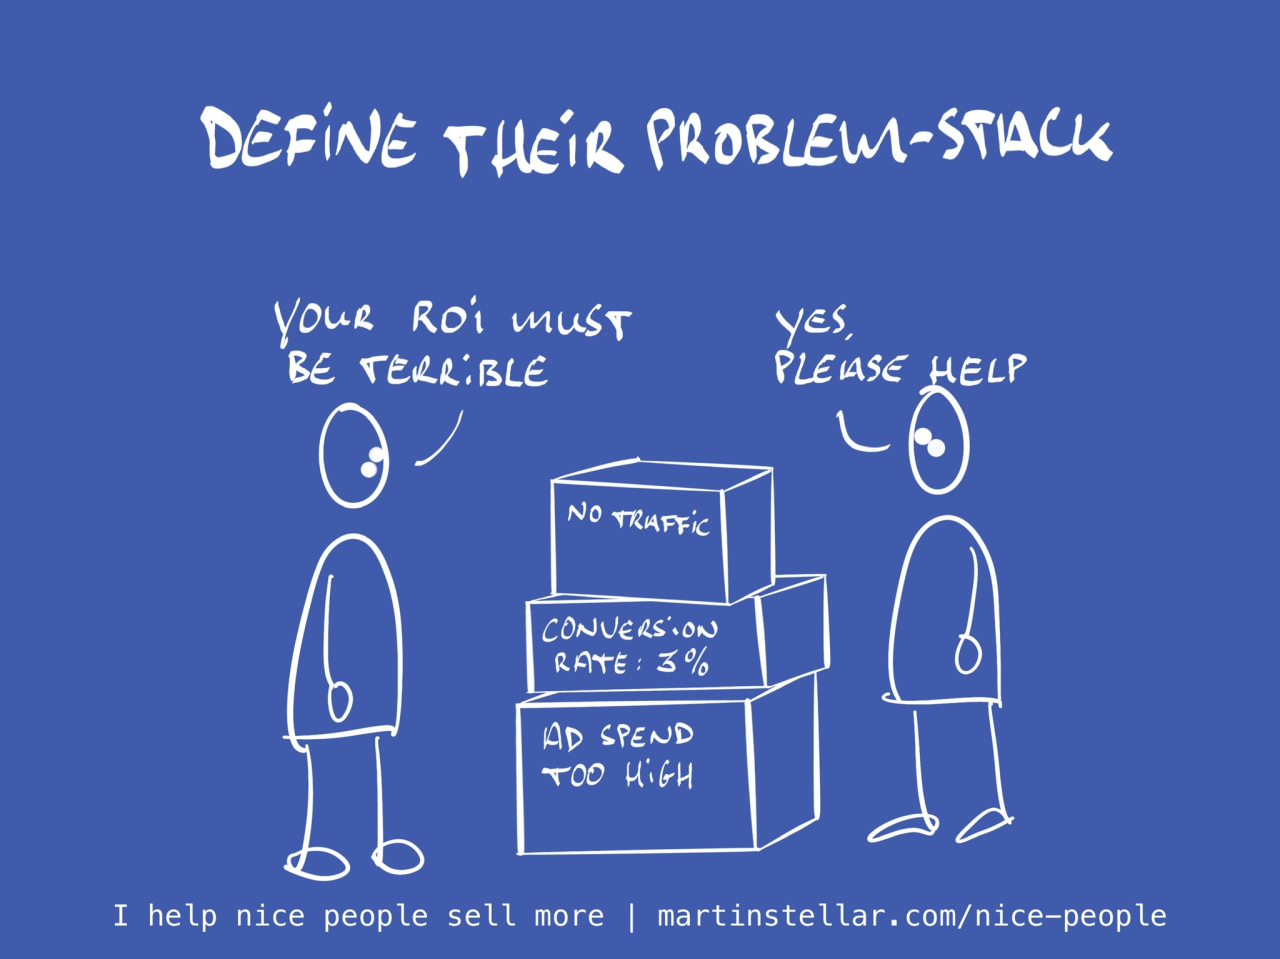 DEFINE THEIR PROBLEM-STACK
YOUR ROI MUST
BE TERRIBLE
YES,
PLEASE HELP
NO TRAFFIC
CONVERSION
RATE: 3%
AD SPEND
TOO HIGH
I help nice people sell more | martinstellar.com/nice-people